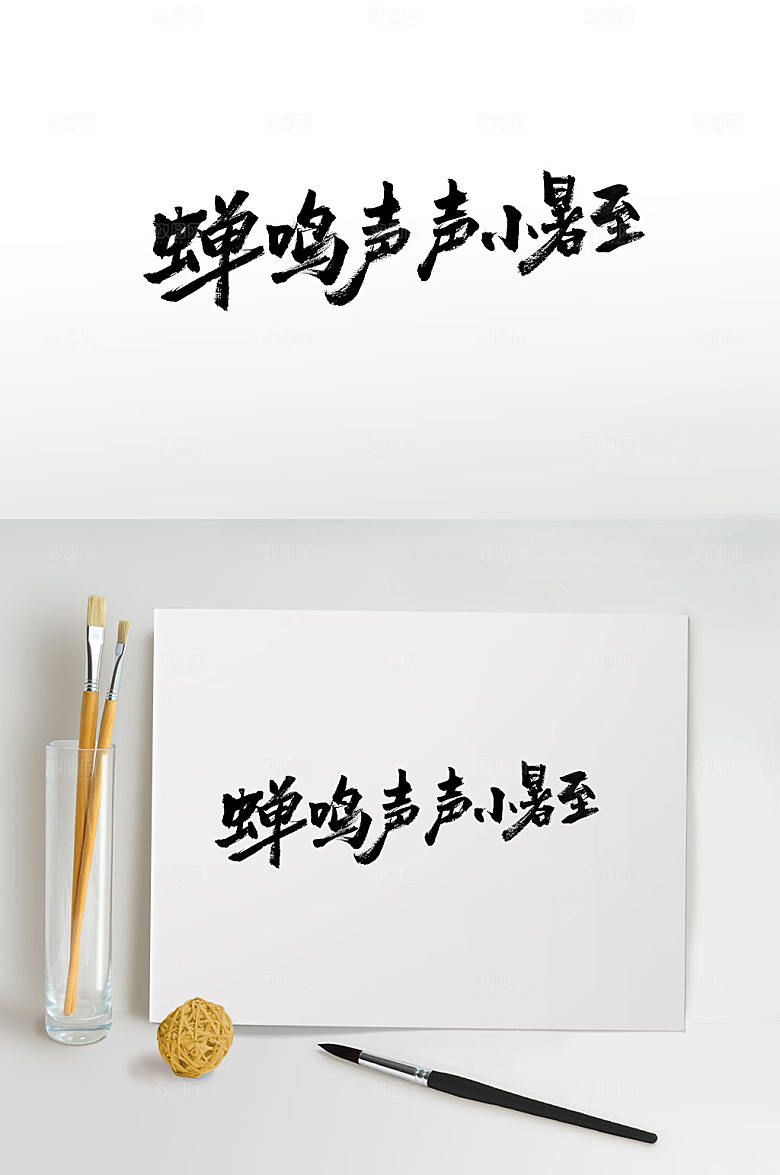 蝉鸣声声小暑至
蝉鸣声声小暑至